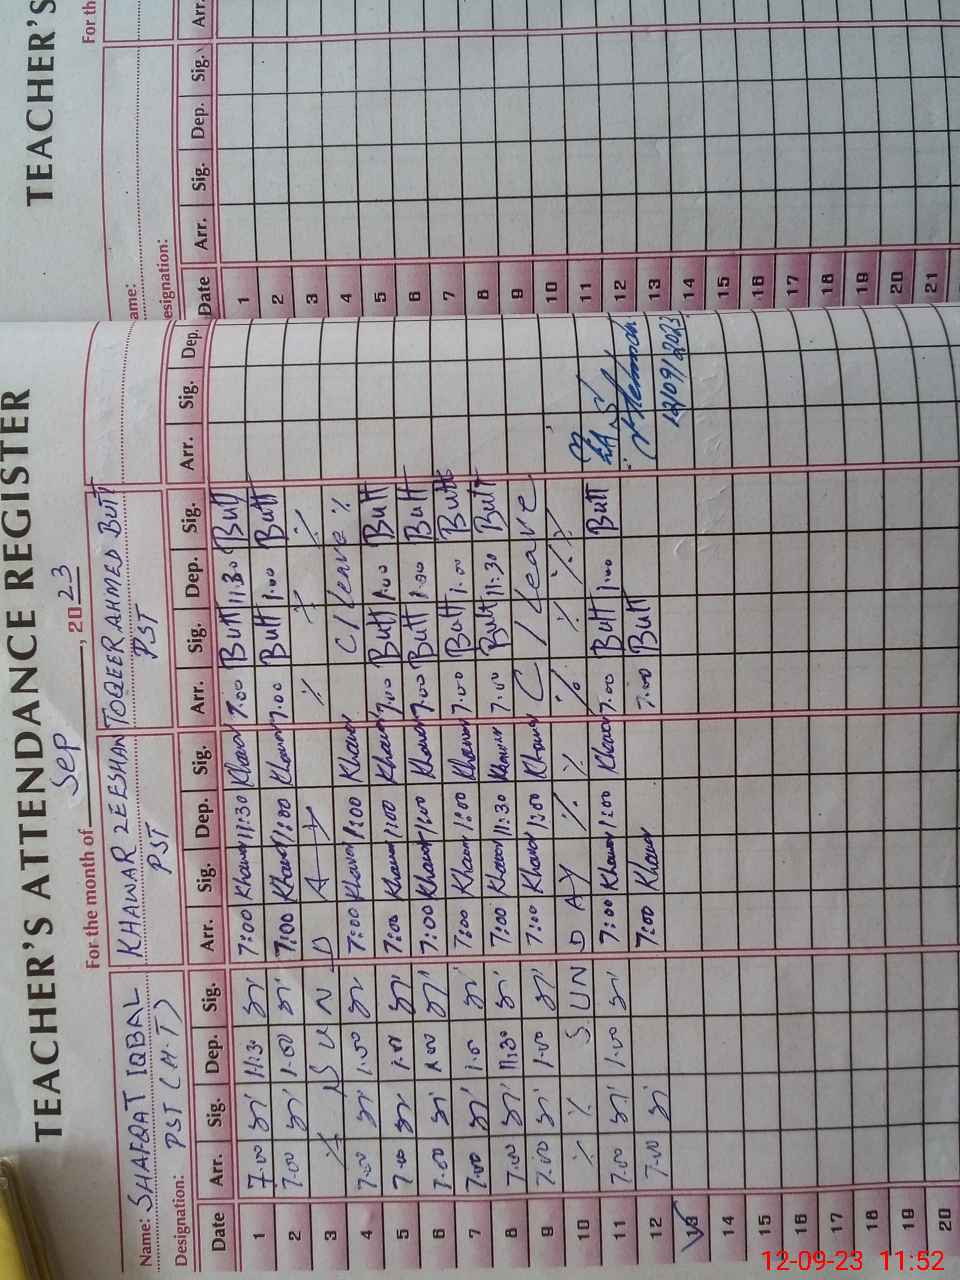 TEACHER'S ATTENDANCE REGISTER
For the month of Sep, 2023
Name: SHAFQAT IQBAL KHAWAR ZEESHAN TOQEER AHMED BUTT
Designation: PST (H.T) PST PST
Date Arr. Sig. Dep. Sig. Arr. Sig. Dep. Sig. Arr. Sig. Dep. Sig. Arr. Sig. Dep.
1 7.00 11:30 7:00 Khawar 11:30 Khawar 7.00 Butt 11.30 Butt
2 7.00 1.00 7:00 Khawar 1:00 Khawar 7.00 Butt 1.00 Butt
3 % S U N D A Y % % %
4 7.00 1.00 7:00 Khawar 1:00 Khawar C/leave %
5 7.00 1.00 7:00 Khawar 1:00 Khawar 7.00 Butt 1.00 Butt
6 7.00 1.00 7:00 Khawar 1:00 Khawar 7.00 Butt 1.00 Butt
7 7.00 1.00 7:00 Khawar 1:00 Khawar 7.00 Butt 1.00 Butt
8 7.00 11:30 7:00 Khawar 11:30 Khawar 7.00 Butt 11.30 Butt
9 7.00 1.00 7:00 Khawar 1:00 Khawar C/leave
10 % S U N D A Y % % % % %
11 7.00 1.00 7:00 Khawar 1:00 Khawar 7.00 Butt 1.00 Butt
12 7.00 7:00 Khawar 7.00 Butt
13
12/09/2023
14
15
16
17
18
19
20
TEACHER'S
For th
ame:
esignation:
Date Arr. Sig. Dep. Sig. Arr.
1
2
3
4
5
6
7
8
9
10
11
12
13
14
15
16
17
18
19
20
21
12-09-23 11:52